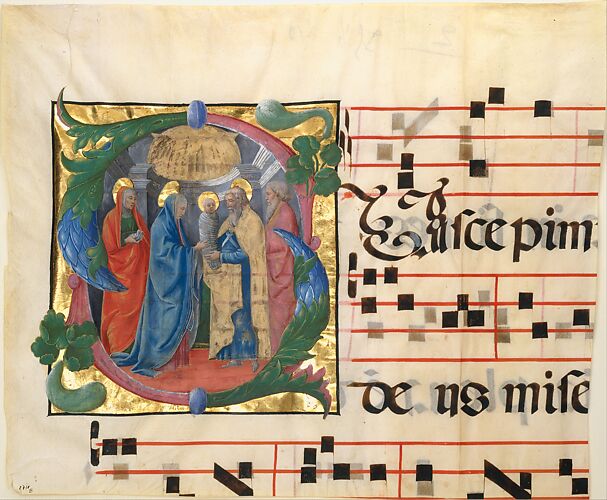 Suscepim
deus mise